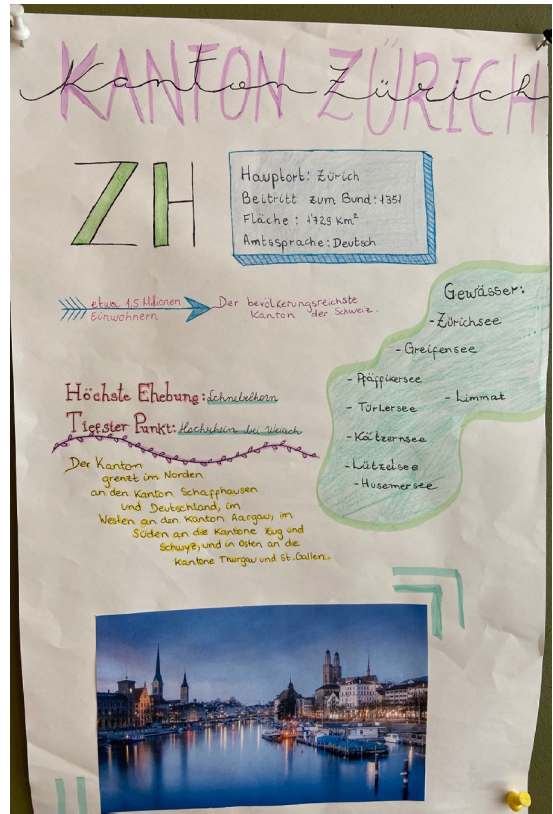 Kanton Zürich
KANTON ZÜRICH
ZH
Hauptort: Zürich
Beitritt zum Bund: 1351
Fläche: 1729 km²
Amtssprache: Deutsch
etwa 1,5 Milionen
Einwohnern
Der bevölkerungsreichste
Kanton der Schweiz.
Gewässer:
- Zürichsee
- Greifensee
- Pfäffikersee
- Türlersee
- Limmat
- Kätzernsee
- Lützelsee
- Husemersee
Höchste Ehebung: Schnebelhorn
Tiefster Punkt: Hochrhein bei Weiach
Der Kanton
grenzt im Norden
an den Kanton Schaffhausen
und Deutschland, im
Westen an den Kanton Aargau, im
Süden an die Kantone Zug und
Schwyz, und in Osten an die
Kantone Thurgau und St. Gallen.